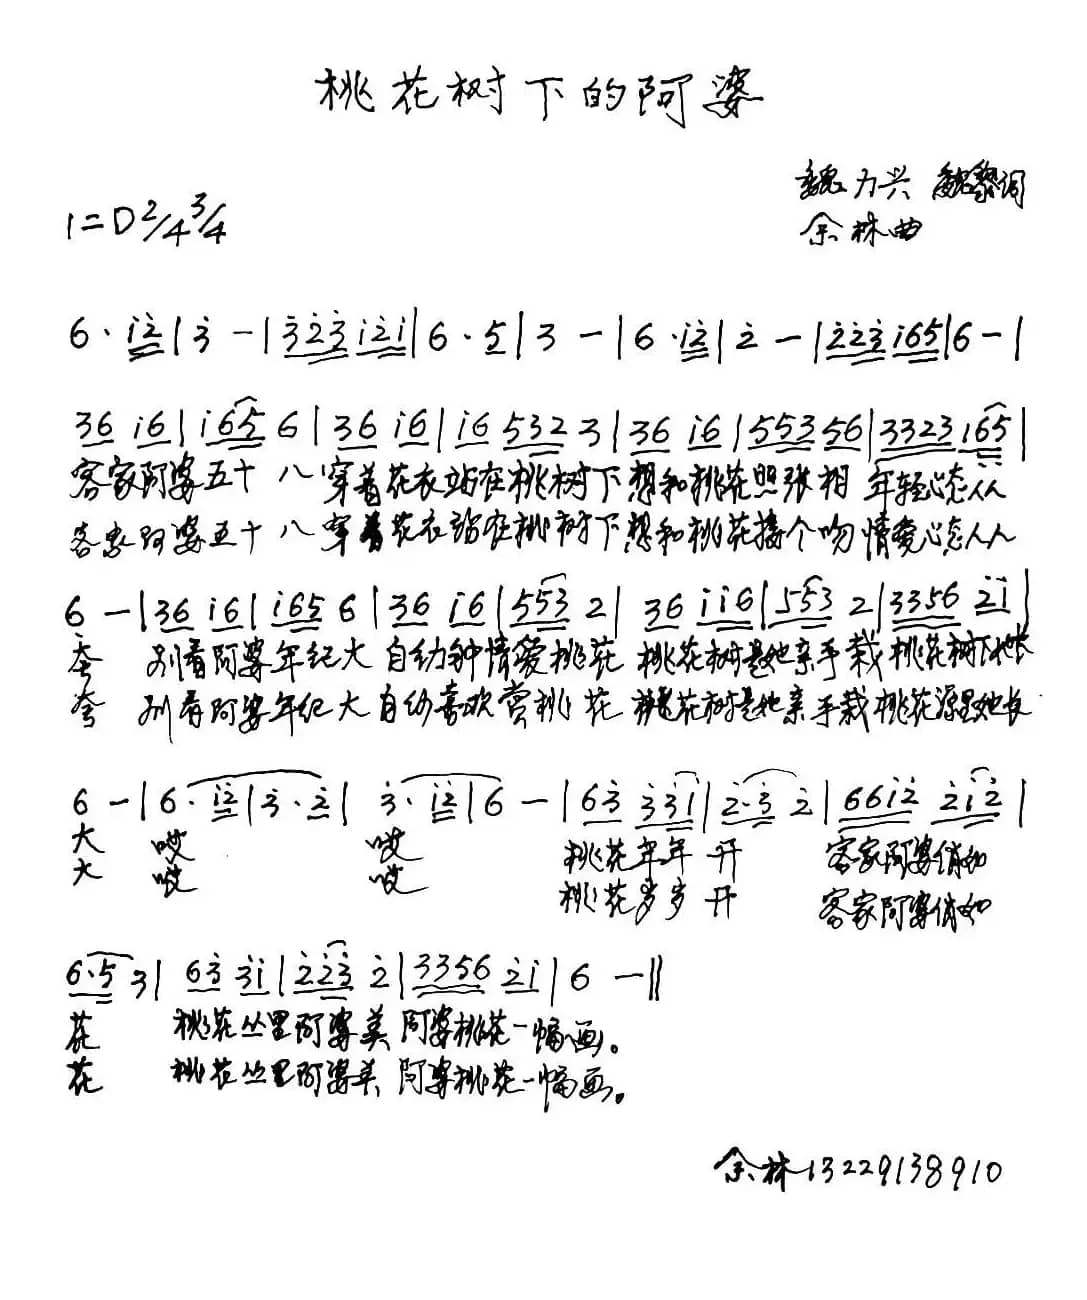 桃花树下的阿婆
魏力兴 魏黎词
1=D 2/4 3/4
余林曲
6· i̇2̇ | 3̇ - | 3̇2̇3̇ i̇2̇i̇ | 6·5 | 3 - | 6· i̇2̇ | 2̇ - | 2̇2̇3̇ i̇65 | 6 - |
36 i̇6 | i̇65 6 | 36 i̇6 | i̇6 532 3 | 36 i̇6 | 553 56 | 3323 i̇65 |
客家阿婆五十八穿着花衣站在桃树下想和桃花照张相 年轻心态人人
客家阿婆五十八穿着花衣站在桃树下想和桃花接个吻 情爱心态人人
6 - | 36 i̇6 | i̇65 6 | 36 i̇6 | 553 2 | 36 i̇i̇6 | 553 2 | 3356 2̇i̇ |
夸 别看阿婆年纪大 自幼钟情爱桃花 桃花树是她亲手栽 桃花树下她长
夸 别看阿婆年纪大 自幼喜欢赏桃花 桃花树是她亲手栽 桃花源里她长
6 - | 6· i̇2̇ | 3̇·2̇ | 3̇· i̇2̇ | 6 - | 63̇ 3̇3̇i̇ | 2̇·3̇ 2̇ | 66i̇2̇ 2̇i̇2̇ |
大 哎 哎 桃花年年开 客家阿婆俏如
大 哎 哎 桃花岁岁开 客家阿婆俏如
6·5 3 | 63̇ 3̇i̇ | 2̇2̇3̇ 2̇ | 3356 2̇i̇ | 6 - ‖
花 桃花丛里阿婆美 阿婆桃花一幅画。
花 桃花丛里阿婆美 阿婆桃花一幅画。
余林13229138910